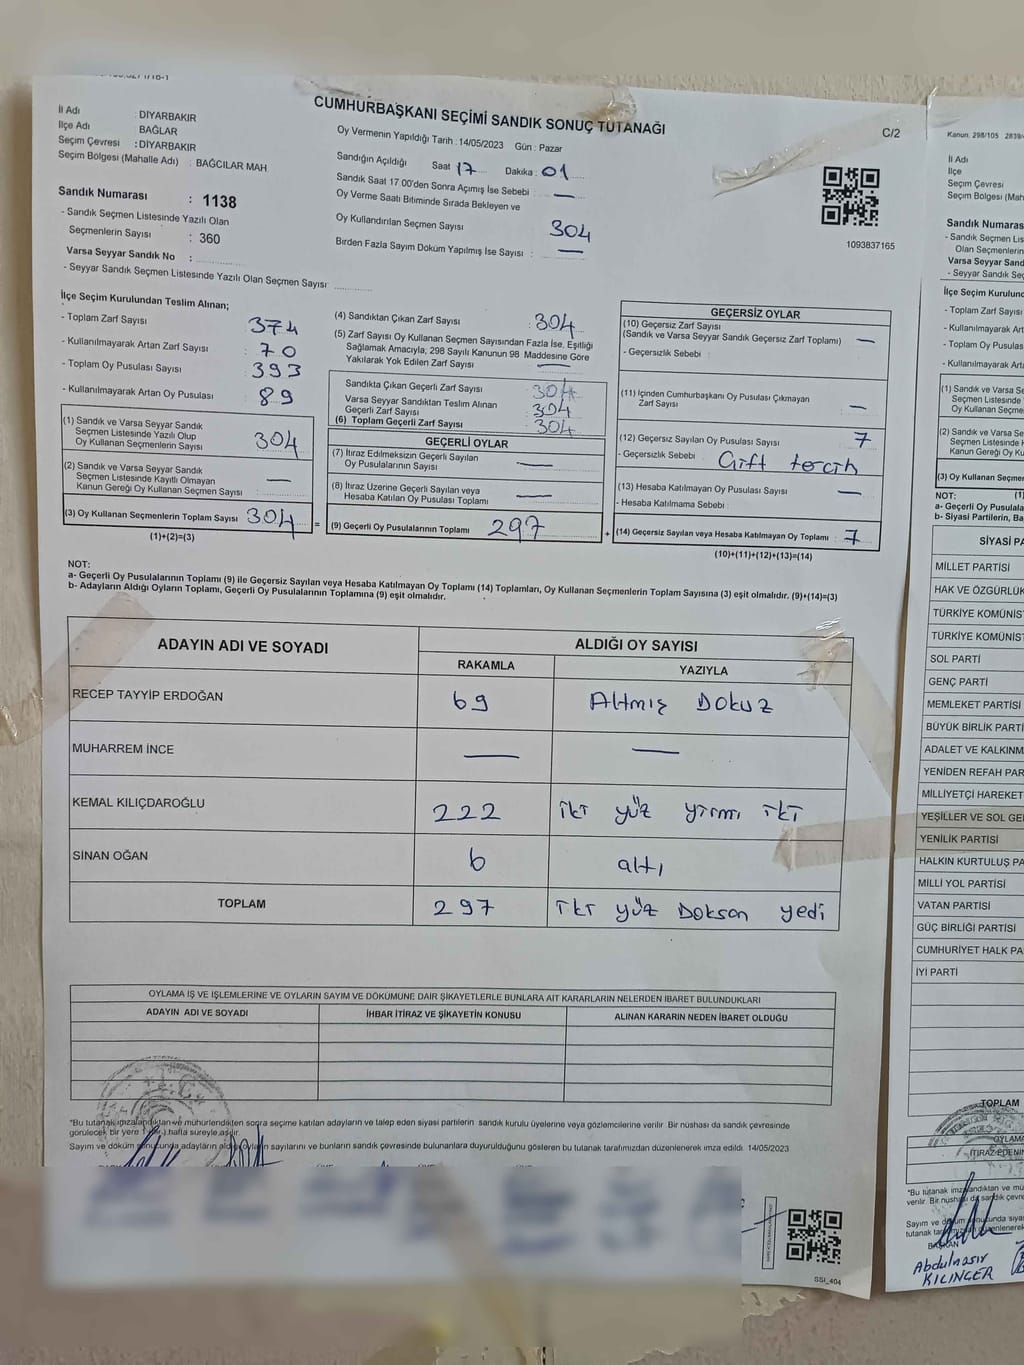 CUMHURBAŞKANI SEÇİMİ SANDIK SONUÇ TUTANAĞI
C/2
İl Adı : DİYARBAKIR
İlçe Adı BAĞLAR
Seçim Çevresi : DİYARBAKIR
Seçim Bölgesi (Mahalle Adı) : BAĞCILAR MAH.
Oy Vermenin Yapıldığı Tarih : 14/05/2023 Gün : Pazar
Sandığın Açıldığı Saat 17 Dakika : 01
Sandık Saat 17:00'den Sonra Açılmış İse Sebebi : —
Oy Verme Saati Bitiminde Sırada Bekleyen ve
Oy Kullandırılan Seçmen Sayısı 304
Birden Fazla Sayım Döküm Yapılmış İse Sayısı : —
1093837165
Sandık Numarası : 1138
- Sandık Seçmen Listesinde Yazılı Olan
Seçmenlerin Sayısı : 360
Varsa Seyyar Sandık No :
- Seyyar Sandık Seçmen Listesinde Yazılı Olan Seçmen Sayısı :
İlçe Seçim Kurulundan Teslim Alınan;
- Toplam Zarf Sayısı 374
- Kullanılmayarak Artan Zarf Sayısı : 70
- Toplam Oy Pusulası Sayısı : 393
- Kullanılmayarak Artan Oy Pusulası : 89
(1) Sandık ve Varsa Seyyar Sandık
Seçmen Listesinde Yazılı Olup
Oy Kullanan Seçmenlerin Sayısı 304
(2) Sandık ve Varsa Seyyar Sandık
Seçmen Listesinde Kayıtlı Olmayan
Kanun Gereği Oy Kullanan Seçmen Sayısı —
(3) Oy Kullanan Seçmenlerin Toplam Sayısı 304 =
(1)+(2)=(3)
(4) Sandıktan Çıkan Zarf Sayısı : 304
(5) Zarf Sayısı Oy Kullanan Seçmen Sayısından Fazla İse, Eşitliği
Sağlamak Amacıyla, 298 Sayılı Kanunun 98 Maddesine Göre
Yakılarak Yok Edilen Zarf Sayısı —
Sandıkta Çıkan Geçerli Zarf Sayısı 304
Varsa Seyyar Sandıktan Teslim Alınan
Geçerli Zarf Sayısı 304
(6) Toplam Geçerli Zarf Sayısı 304
GEÇERLİ OYLAR
(7) İtiraz Edilmeksizin Geçerli Sayılan
Oy Pusulalarının Sayısı —
(8) İtiraz Üzerine Geçerli Sayılan veya
Hesaba Katılan Oy Pusulası Toplamı —
(9) Geçerli Oy Pusulalarının Toplamı 297 +
GEÇERSİZ OYLAR
(10) Geçersiz Zarf Sayısı
(Sandık ve Varsa Seyyar Sandık Geçersiz Zarf Toplamı) —
- Geçersizlik Sebebi :
(11) İçinden Cumhurbaşkanı Oy Pusulası Çıkmayan
Zarf Sayısı —
(12) Geçersiz Sayılan Oy Pusulası Sayısı 7
- Geçersizlik Sebebi : Çift tercih
(13) Hesaba Katılmayan Oy Pusulası Sayısı —
- Hesaba Katılmama Sebebi :
(14) Geçersiz Sayılan veya Hesaba Katılmayan Oy Toplamı : 7
(10)+(11)+(12)+(13)=(14)
NOT:
a- Geçerli Oy Pusulalarının Toplamı (9) ile Geçersiz Sayılan veya Hesaba Katılmayan Oy Toplamı (14) Toplamları, Oy Kullanan Seçmenlerin Toplam Sayısına (3) eşit olmalıdır. (9)+(14)=(3)
b- Adayların Aldığı Oyların Toplamı, Geçerli Oy Pusulalarının Toplamına (9) eşit olmalıdır.
ADAYIN ADI VE SOYADI ALDIĞI OY SAYISI
RAKAMLA YAZIYLA
RECEP TAYYİP ERDOĞAN 69 Altmış Dokuz
MUHARREM İNCE — —
KEMAL KILIÇDAROĞLU 222 iki yüz yirmi iki
SİNAN OĞAN 6 altı
TOPLAM 297 iki yüz Doksan yedi
OYLAMA İŞ VE İŞLEMLERİNE VE OYLARIN SAYIM VE DÖKÜMÜNE DAİR ŞİKAYETLERLE BUNLARA AİT KARARLARIN NELERDEN İBARET BULUNDUKLARI
ADAYIN ADI VE SOYADI İHBAR İTİRAZ VE ŞİKAYETİN KONUSU ALINAN KARARIN NEDEN İBARET OLDUĞU
*Bu tutanak imzalandıktan ve mühürlendikten sonra seçime katılan adayların ve talep eden siyasi partilerin sandık kurulu üyelerine veya gözlemcilerine verilir. Bir nüshası da sandık çevresinde
görülecek bir yere 1 (Bir) hafta süreyle asılır.
Sayım ve döküm sonucunda adayların aldığı oyların sayılarını ve bunların sandık çevresinde bulunanlara duyurulduğunu gösteren bu tutanak tarafımızdan düzenlenerek imza edildi. 14/05/2023
SSI_404
Kanun: 298/105
İl Adı
İlçe
Seçim Çevresi
Seçim Bölgesi (Mah
Sandık Numaras
- Sandık Seçmen Lis
Olan Seçmenlerin
Varsa Seyyar Sand
- Seyyar Sandık Seç
İlçe Seçim Kurulunc
- Toplam Zarf Sayısı
- Kullanılmayarak Artan
- Toplam Oy Pusulas
- Kullanılmayarak Artan
(1) Sandık ve Varsa S
Seçmen Listesinde
Oy Kullanan Seçme
(2) Sandık ve Varsa S
Seçmen Listesinde
Kanun Gereği Oy K
(3) Oy Kullanan Seçme
NOT: (1)
a- Geçerli Oy Pusulaları
b- Siyasi Partilerin, Ba
SİYASİ PA
MİLLET PARTİSİ
HAK VE ÖZGÜRLÜK
TÜRKİYE KOMÜNİST
TÜRKİYE KOMÜNİST
SOL PARTİ
GENÇ PARTİ
MEMLEKET PARTİSİ
BÜYÜK BİRLİK PARTİ
ADALET VE KALKINM
YENİDEN REFAH PAR
MİLLİYETÇİ HAREKET
YEŞİLLER VE SOL GE
YENİLİK PARTİSİ
HALKIN KURTULUŞ PA
MİLLİ YOL PARTİSİ
VATAN PARTİSİ
GÜÇ BİRLİĞİ PARTİSİ
CUMHURİYET HALK PA
İYİ PARTİ
TOPLAM
OYLAMA
İTİRAZ EDENİN
*Bu tutanak imzalandıktan ve mü
verilir. Bir nüshası da sandık çevre
Sayım ve döküm sonucunda siyas
tutanak tarafımızdan düzenlenerek
BAŞKAN
Abdulnasır
KILINÇER